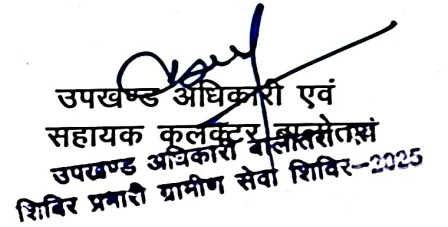 उपखण्ड अधिकारी एवं
सहायक कलक्टर बालोतरा
उपखण्ड अधिकारी बालोतरा
शिविर प्रभारी ग्रामीण सेवा शिविर-2025